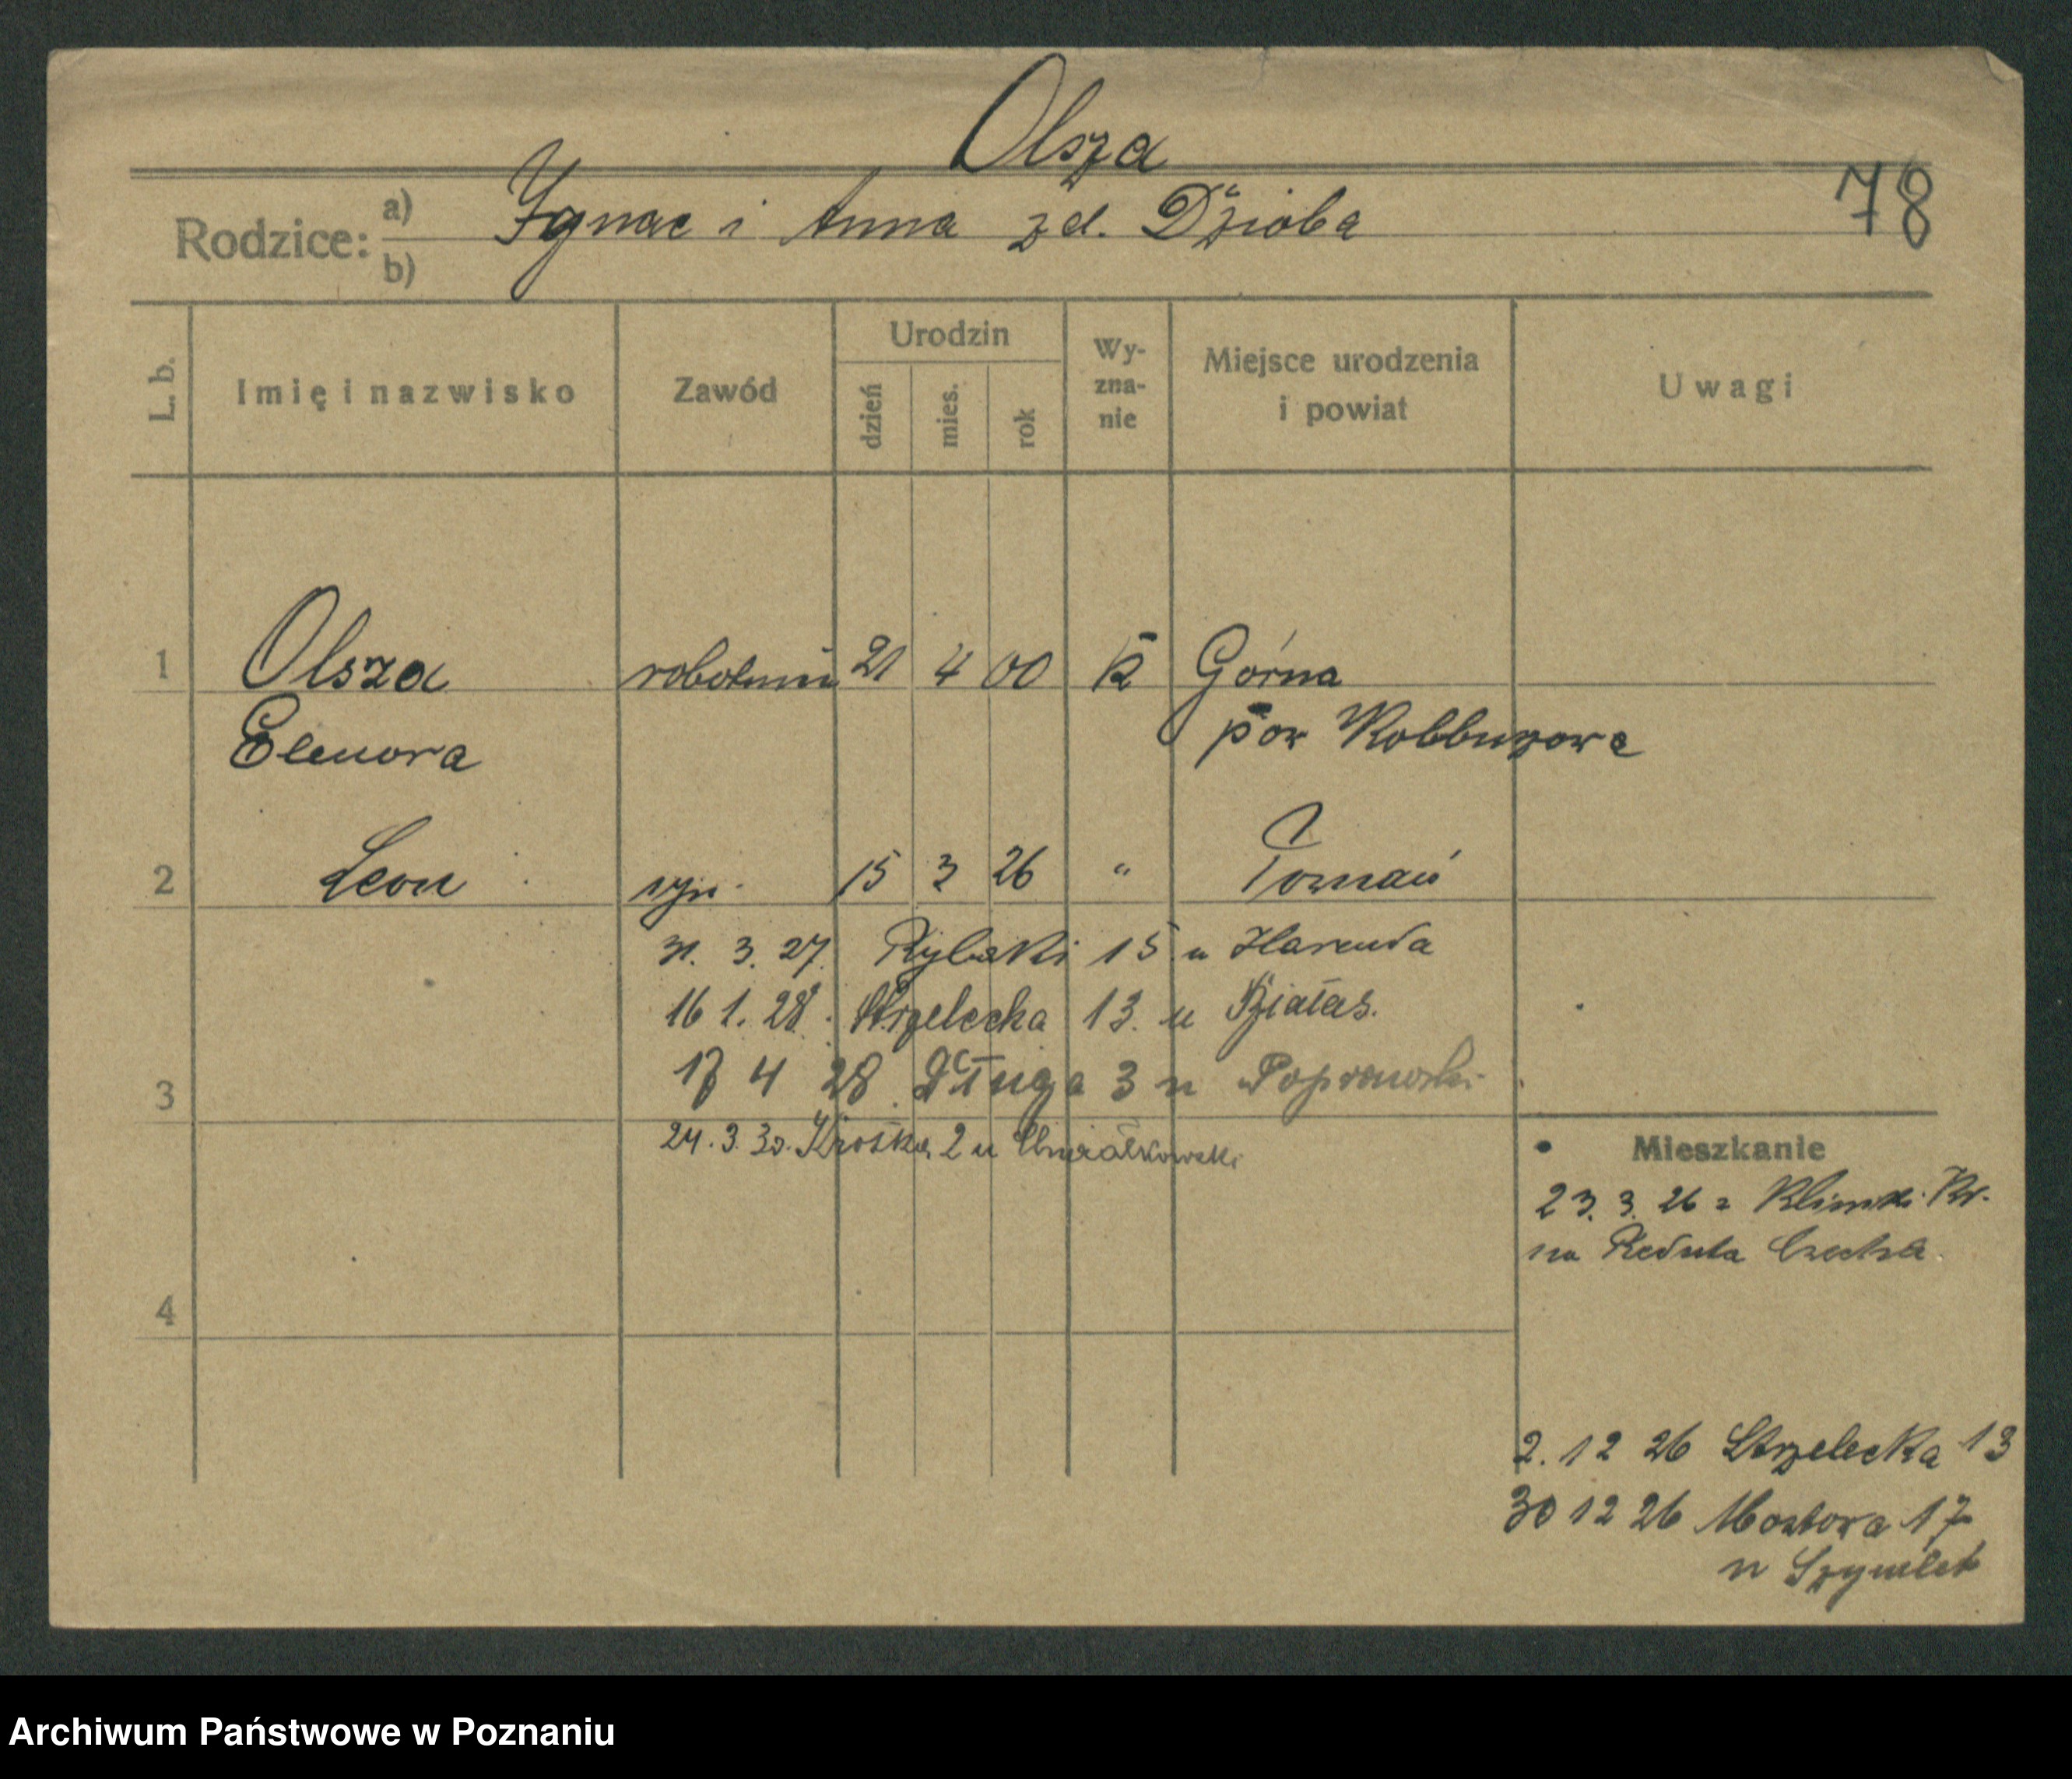 Olsza
78
Rodzice: a) Ignac i Anna zd. Dzioba
b)
L. b. Imię i nazwisko Zawód Urodzin dzień mies. rok Wy-zna-nie Miejsce urodzenia i powiat Uwagi
1 Olsza robotnica 21 4 00 k Górna
Elenora pow Kolbuszowa
2 Leon syn 15 3 26 " Poznań
31. 3. 27. Rybaki 15 u Harenda
16 1. 28. Strzelecka 13. u
3 4 28 Długa 3 u
24. 3. 30. 2 u Chwiałkowski
Mieszkanie
23. 3. 26 z
na Reduta Czecha
4
2. 12 26 Strzelecka 13
30 12 26 Mostowa 17
u
Archiwum Państwowe w Poznaniu